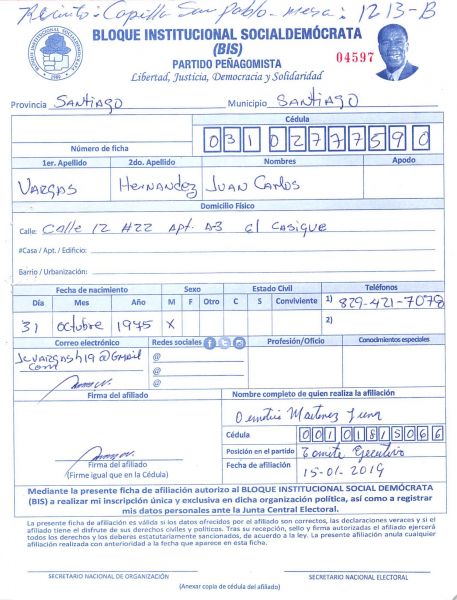 Recinto: Capilla San Pablo - mesa: 1213-B
BLOQUE INSTITUCIONAL SOCIALDEMÓCRATA
(BIS)
PARTIDO PEÑAGOMISTA
Libertad, Justicia, Democracia y Solidaridad
04597
Provincia SANTIAGO Municipio SANTIAGO
Número de ficha
Cédula
03102777590
1er. Apellido 2do. Apellido Nombres Apodo
VARGAS HERNANDEZ JUAN CARLOS
Domicilio Físico
Calle: Calle 12 #22 Apt. A-3 El Casique
#Casa / Apt. / Edificio:
Barrio / Urbanización:
Fecha de nacimiento Sexo Estado Civil Teléfonos
Día Mes Año M F Otro C S Conviviente 1) 829-421-7078
31 octubre 1975 X 2)
Correo electrónico Redes sociales Profesión/Oficio Conocimientos especiales
Jcvargash19@Gmail
com
@
@
@
Firma del afiliado
Nombre completo de quien realiza la afiliación
Martinez
Cédula
00101815066
Posición en el partido Comite Ejecutivo
Fecha de afiliación 15-01-2019
Firma del afiliado
(Firme igual que en la Cédula)
Mediante la presente ficha de afiliación autorizo al BLOQUE INSTITUCIONAL SOCIAL DEMÓCRATA
(BIS) a realizar mi inscripción única y exclusiva en dicha organización política, así como a registrar
mis datos personales ante la Junta Central Electoral.
La presente ficha de afiliación es válida si los datos ofrecidos por el afiliado son correctos, las declaraciones veraces y si el
afiliado tiene el disfrute de sus derechos civiles y políticos. Tras su recepción, sello y firma autorizadas el afiliado ejercerá
todos los derechos y los deberes estatutariamente sancionados, de acuerdo a la ley. La presente afiliación anula cualquier
afiliación realizada con anterioridad a la fecha que aparece en esta ficha.
SECRETARIO NACIONAL DE ORGANIZACIÓN SECRETARIO NACIONAL ELECTORAL
(Anexar copia de cédula del afiliado)